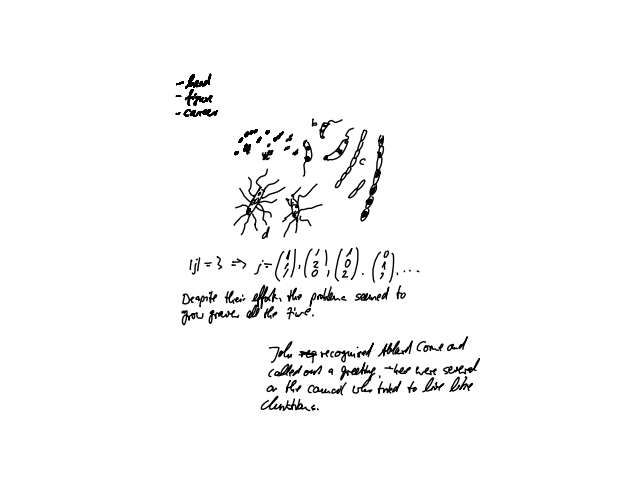 - head
- figure
- career
b
c
d
|j| = 3 ⇒ j = (1 1 1), (1 2 0), (1 0 2), (0 1 2), ...
Despite their efforts, the problems seemed to
grow graver all the time.
John recognized Abland Corne and
called out a greeting. There were several
on the council who tried to live like
Christians.